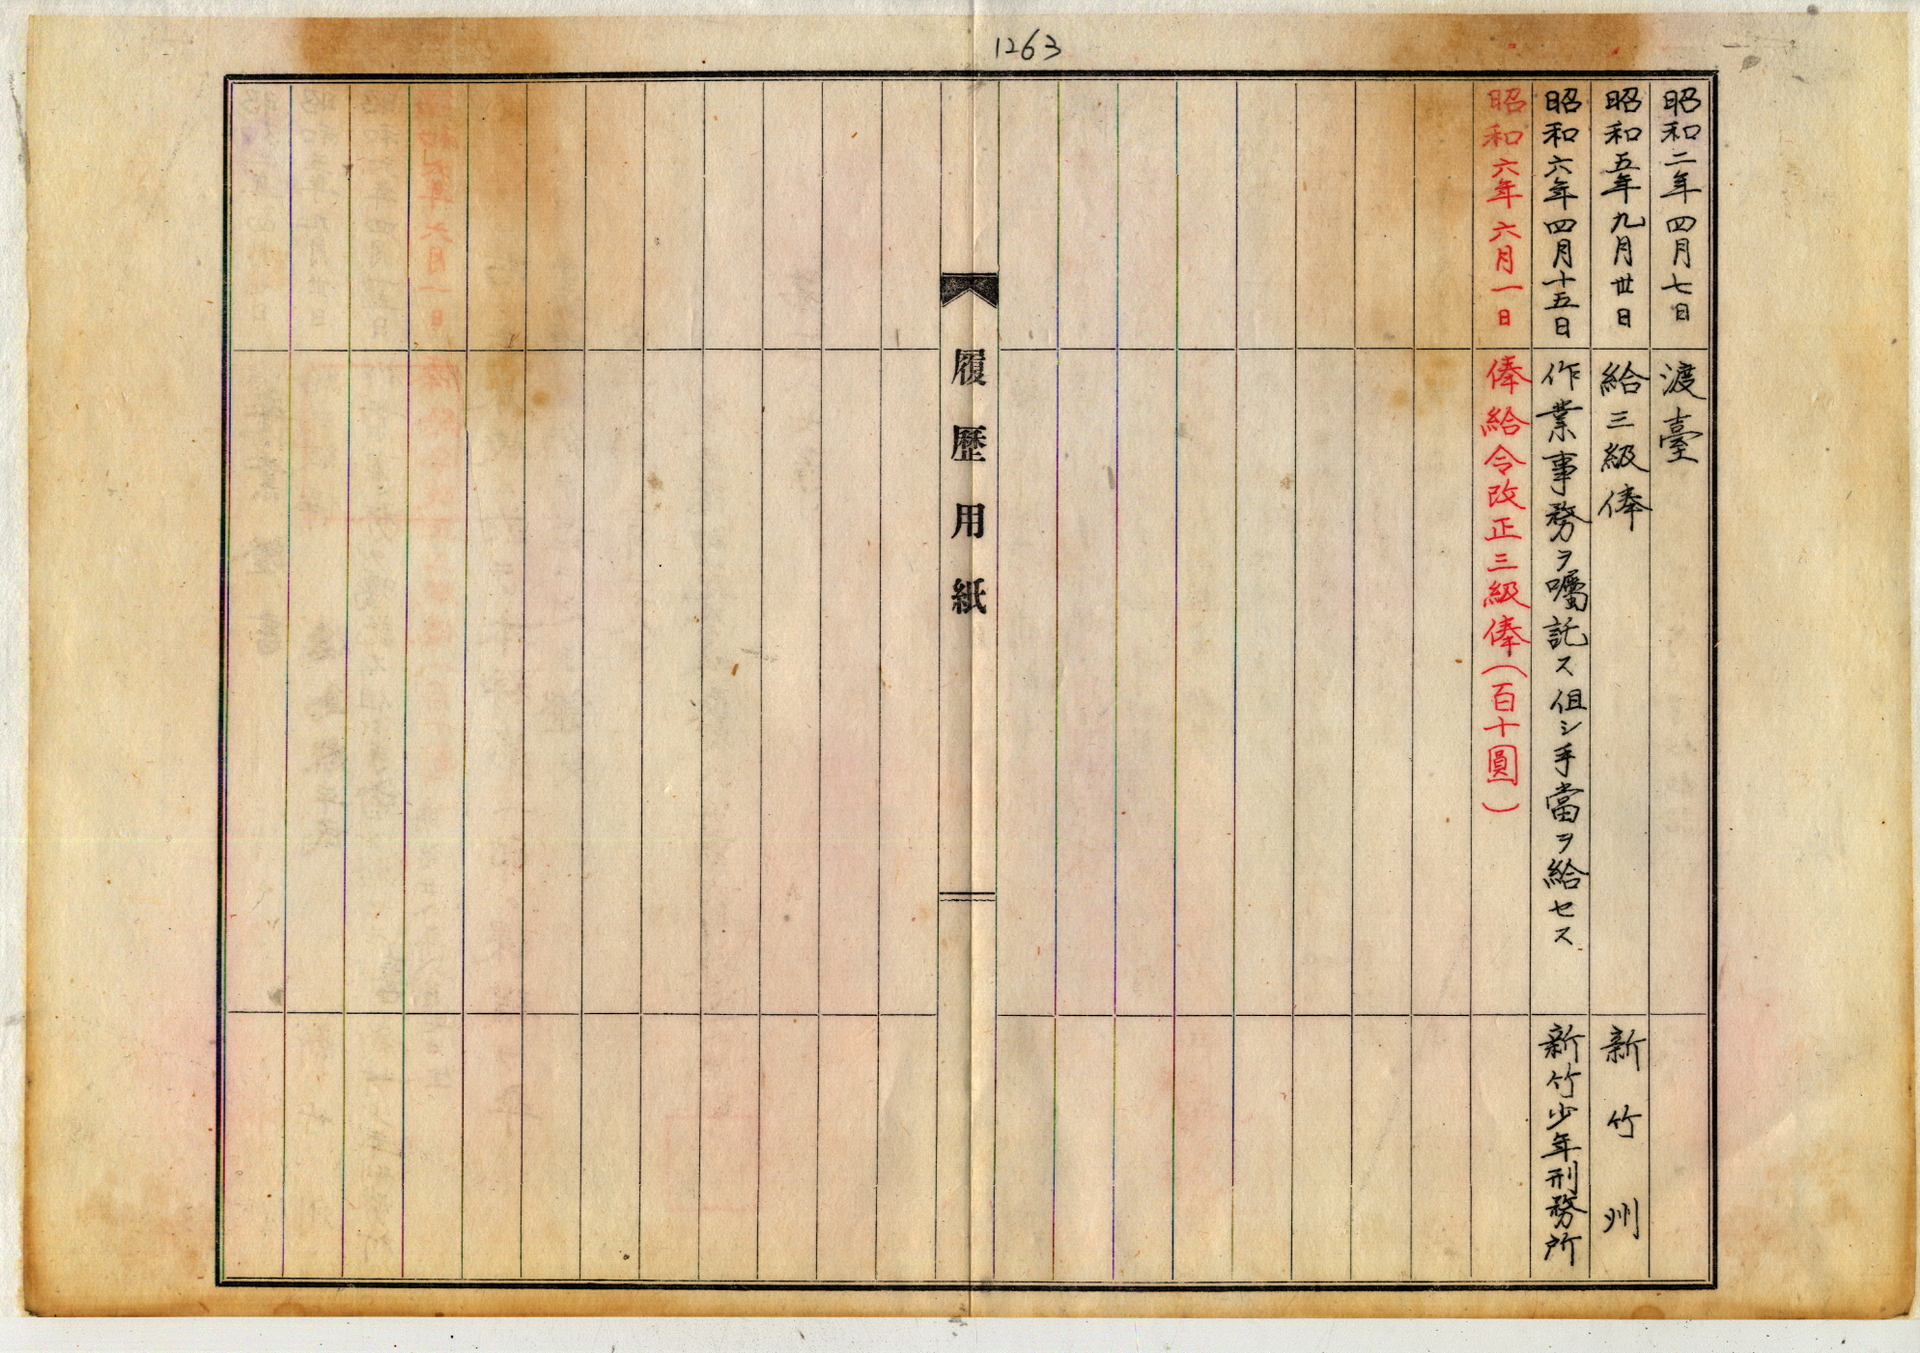 1263
昭和二年四月七日 渡臺
昭和五年九月卅日 給三級俸 新竹州
昭和六年四月十五日 作業事務ヲ囑託ス但シ手當ヲ給セス 新竹少年刑務所
昭和六年六月一日 俸給令改正三級俸(百十圓)
履歷用紙